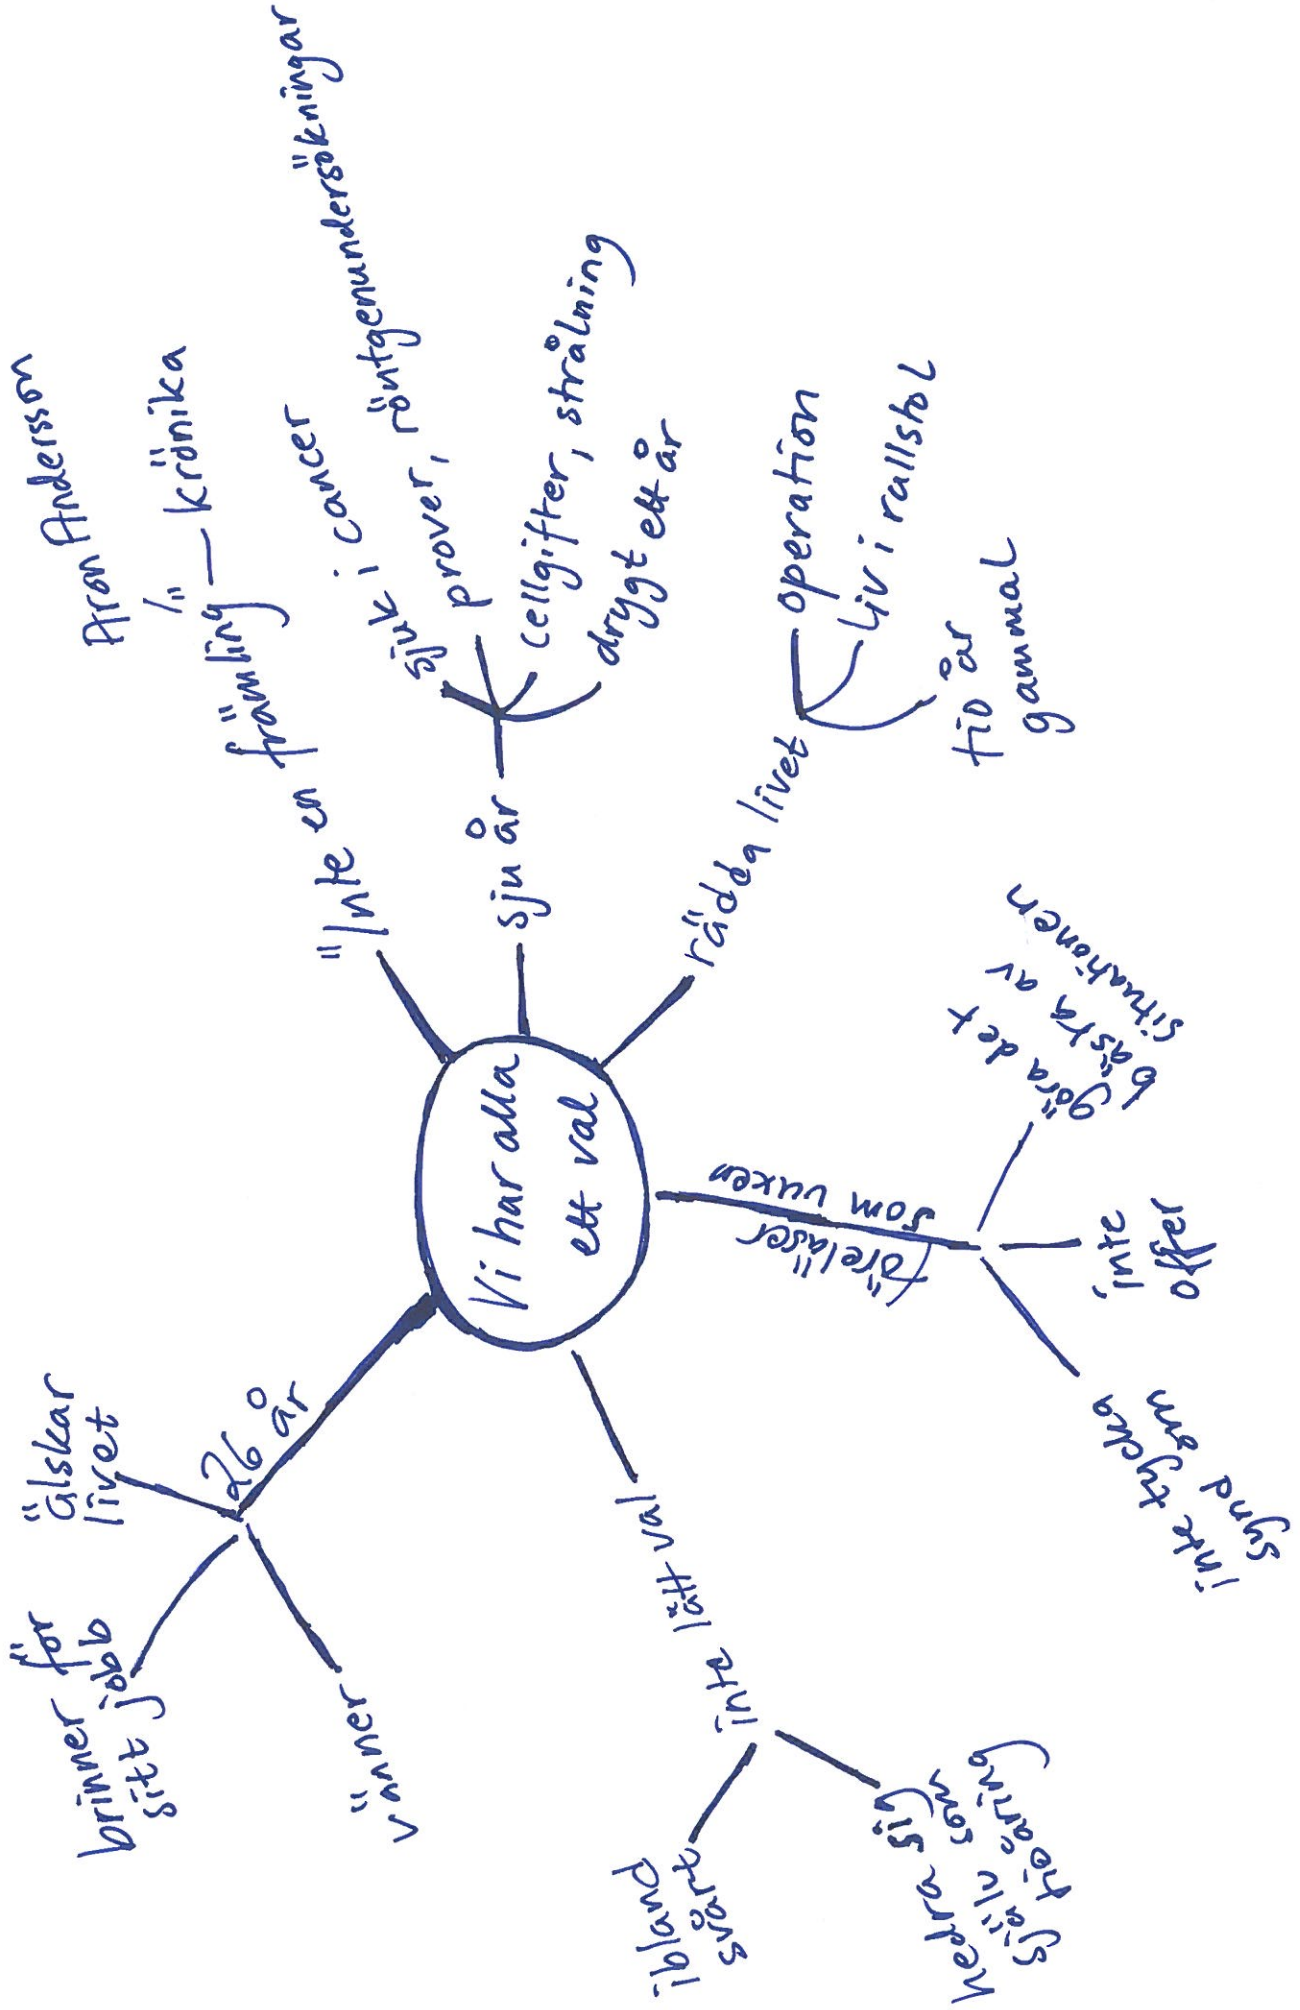 Aron Andersson
"Inte en främling" — krönika
sjuk i cancer
prover, röntgenundersökningar
cellgifter, strålning
drygt ett år
sju år
rädda livet
operation
liv i rullstol
tio år
gammal
Vi har alla
ett val
som vuxen
föreläser
göra det
bästa av
situationen
inte
offer
inte tycka
synd om
inte lätt val
ibland
svårt
hedra sig
själv som
tioåring
26 år
älskar
livet
brinner för
sitt jobb
vänner